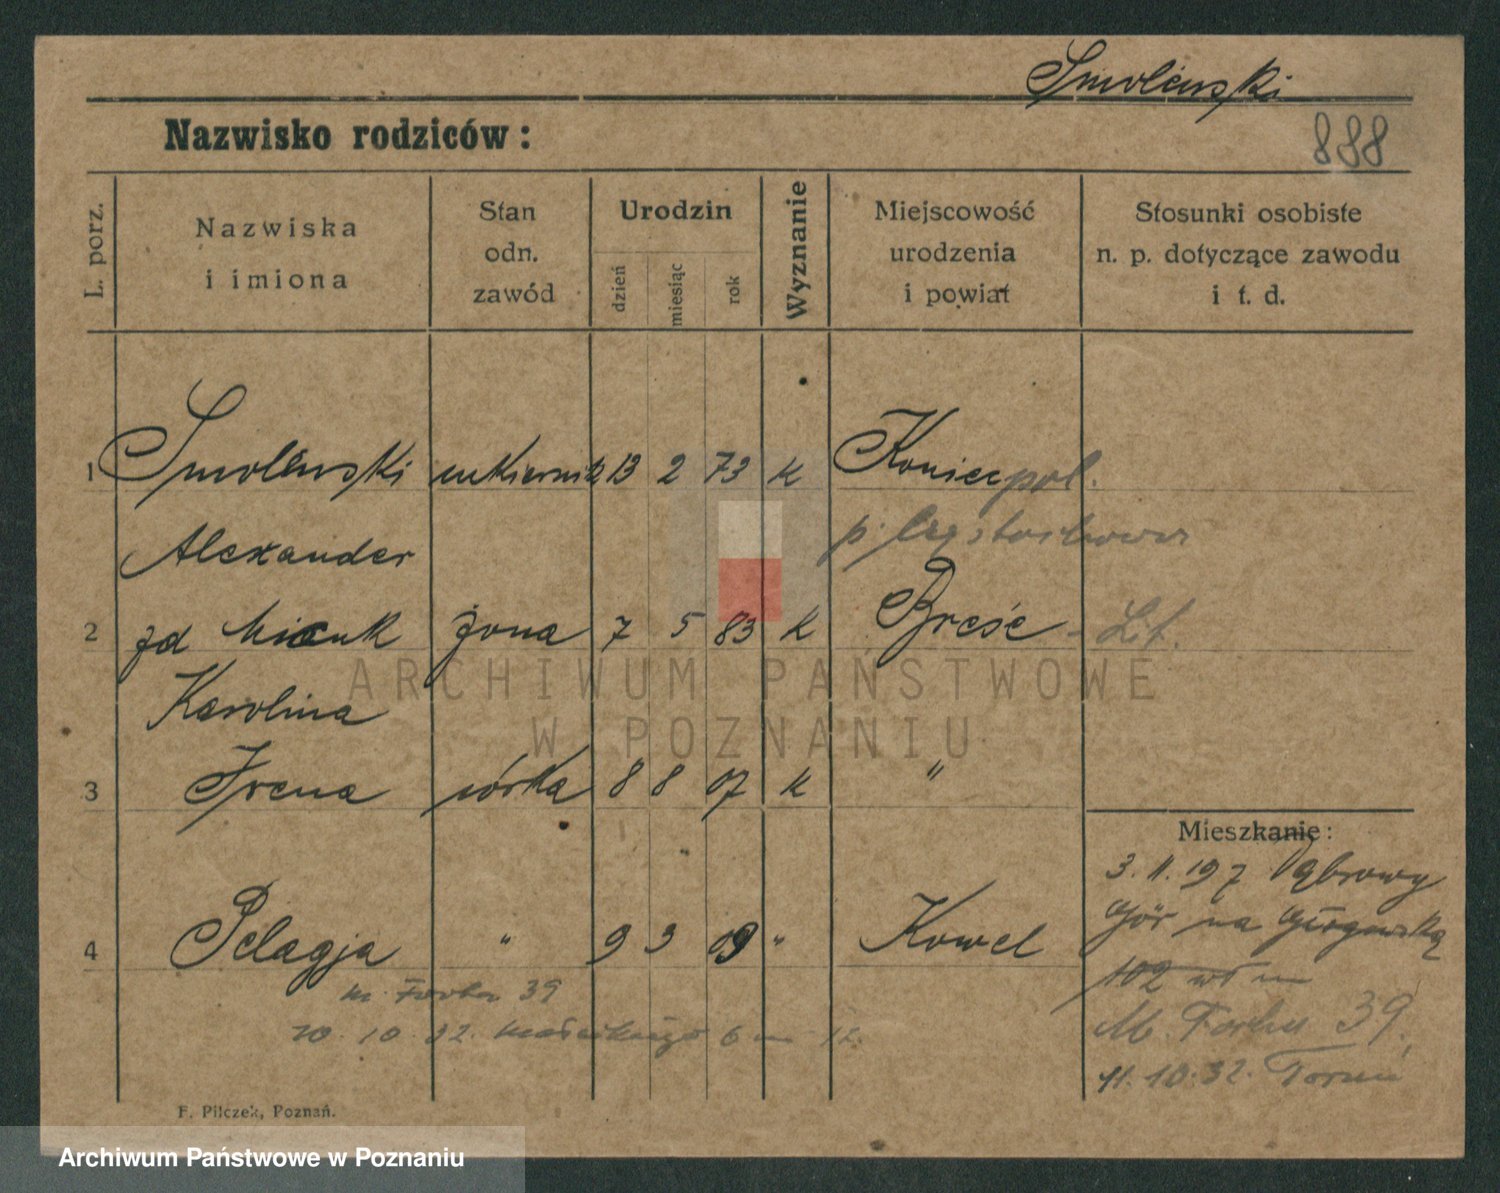 Smoleński
888
Nazwisko rodziców:
L. porz.
Nazwiska
i imiona
Stan
odn.
zawód
Urodzin
dzień
miesiąc
rok
Wyznanie
Miejscowość
urodzenia
i powiat
Stosunki osobiste
n. p. dotyczące zawodu
i t. d.
1 Smoleński cukiernik 13 2 73 k Koniecpol.
Alexander p. Częstochowa
2 zd żona 7 5 83 k Brześć - Lit.
Karolina
3 Irena córka 8 8 07 k "
Mieszkanie:
3. 11. Dąbrowy
Gór na
4 Pelagja " 9 3 09 " Kowel
102
39
M. 39.
10. 10. 32. 6 m 12.
11. 10. 32. Toruń
F. Pilczek, Poznań.
ARCHIWUM PAŃSTWOWE
W POZNANIU
Archiwum Państwowe w Poznaniu